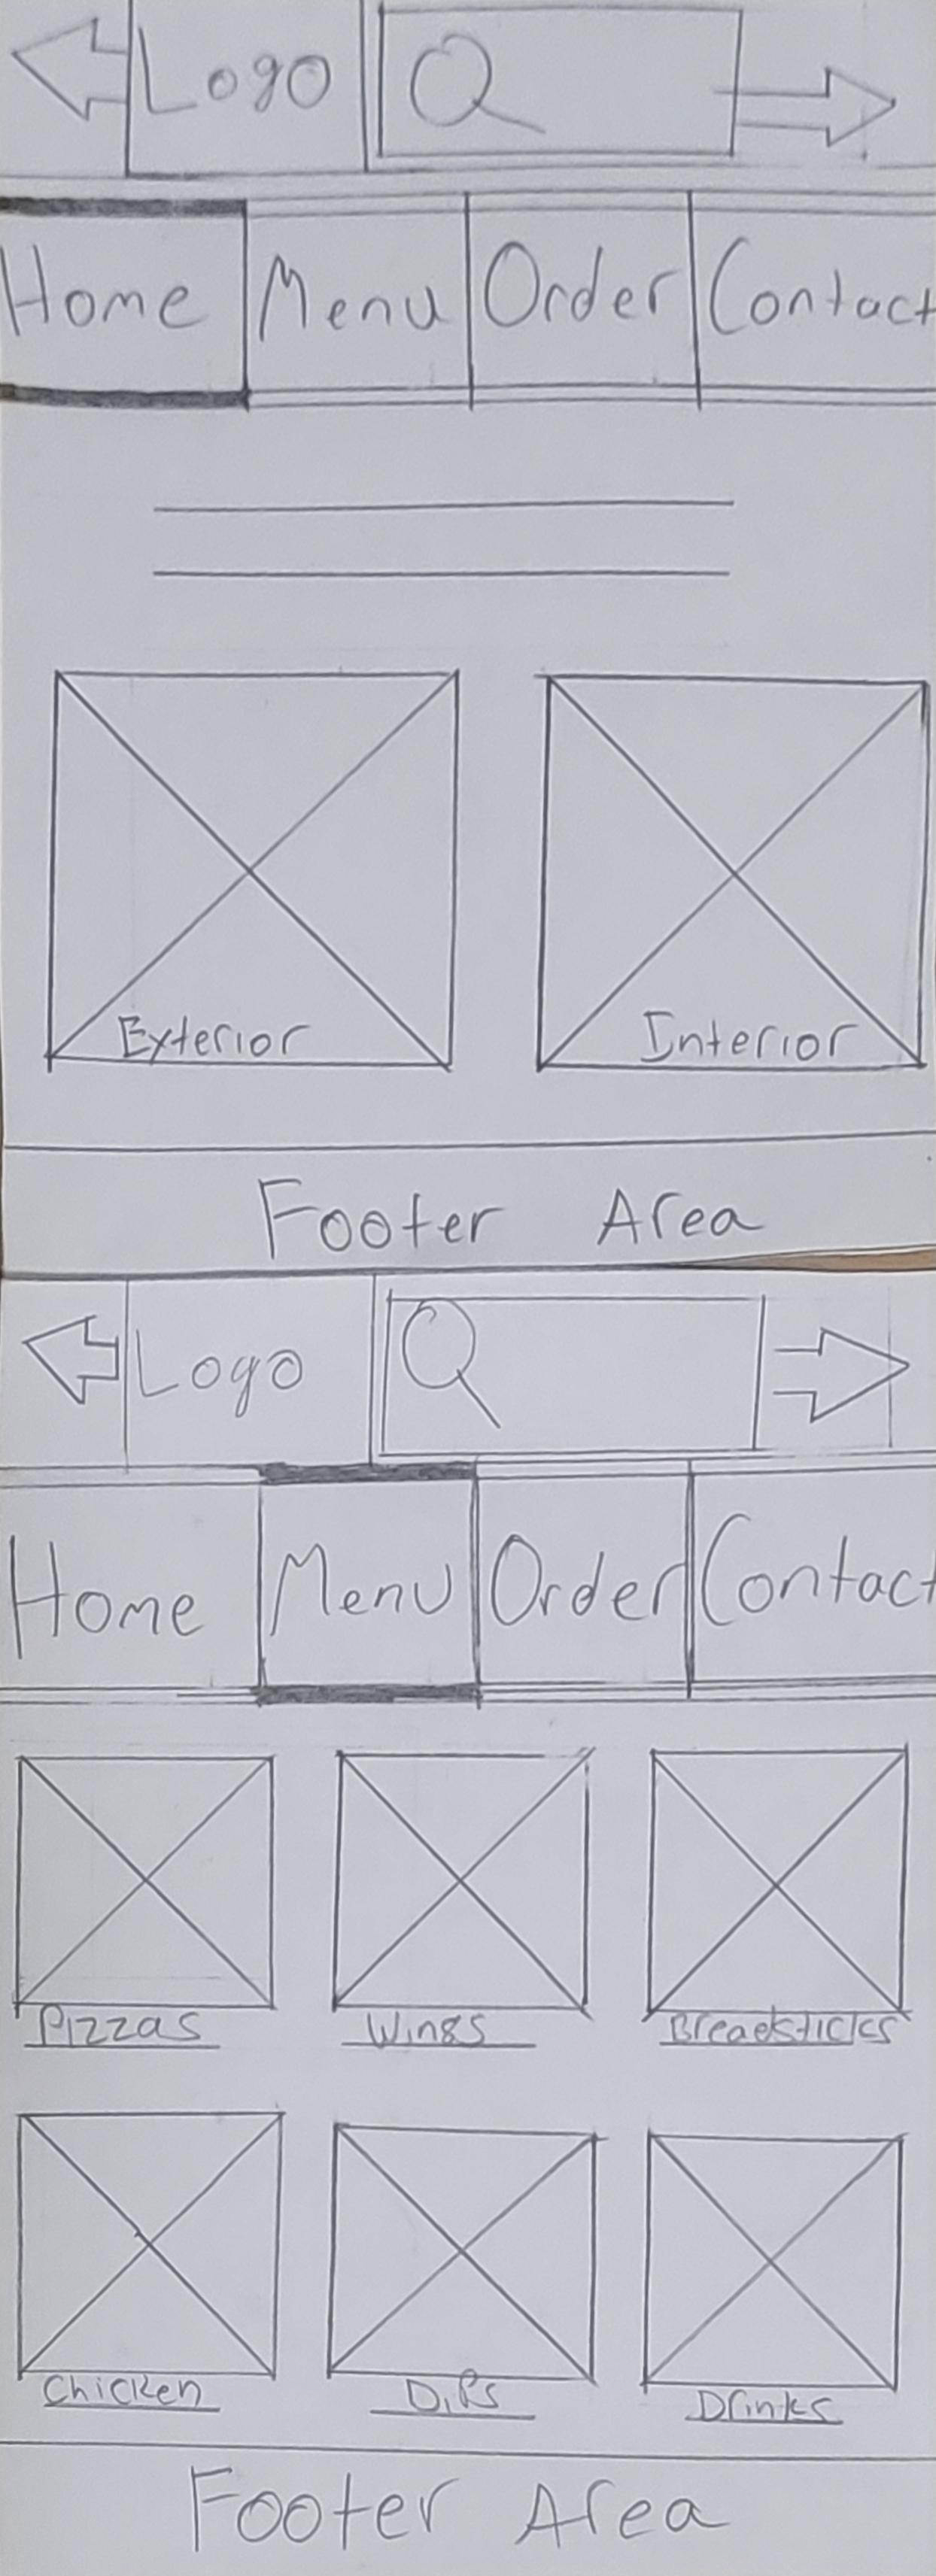 Logo
Home Menu Order Contact
Exterior Interior
Footer Area
Logo
Home Menu Order Contact
Pizzas Wings Breadsticks
Chicken Dips Drinks
Footer Area